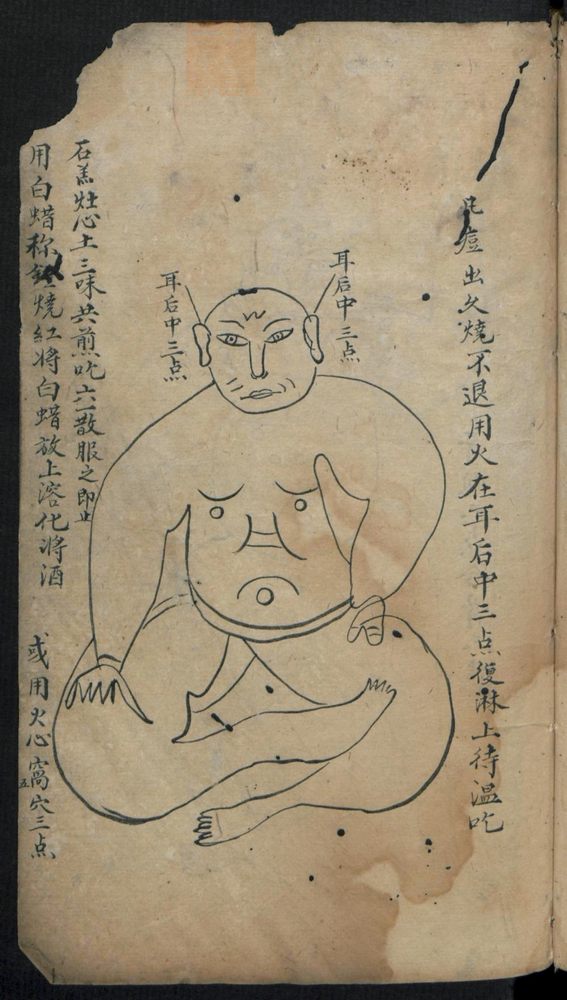 痘出久燒不退用火在耳后中三点復淋上待温吃
耳后中三点
耳后中三点
石羔灶心土三味共煎吃六一散服之即止
用白蜡称燒紅将白蜡放上溶化将酒
或用火心窩穴三点
五